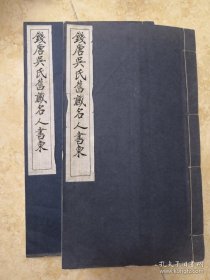 錢唐吳氏舊藏名人書柬
錢唐吳氏舊藏名人書柬
孔夫子旧书网